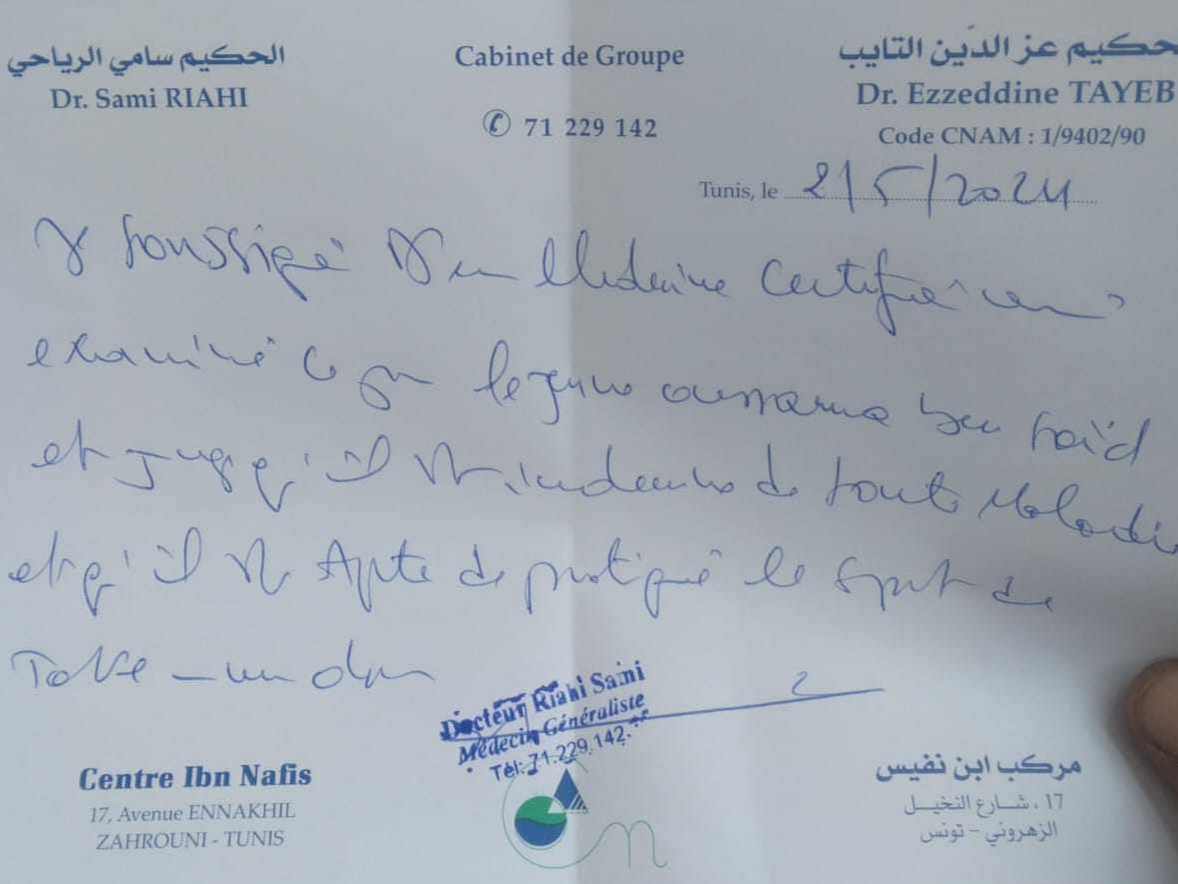 الحكيم سامي الرياحي
Dr. Sami RIAHI
Cabinet de Groupe
✆ 71 229 142
حكيم عز الدّين التايب
Dr. Ezzeddine TAYEB
Code CNAM : 1/9402/90
Tunis, le 2/5/2024
soussigné en Medecine Certifie
examiné ce jour le jeune oussama ben saïd
et juge qu'il est indemne de toute Maladie
et qu'il est Apte de pratiqué le sport de
Docteur Riahi Sami
Médecin Généraliste
Tél: 71.229.142
Centre Ibn Nafis
17, Avenue ENNAKHIL
ZAHROUNI - TUNIS
مركب ابن نفيس
17 ، شارع النخيل
الزهروني – تونس